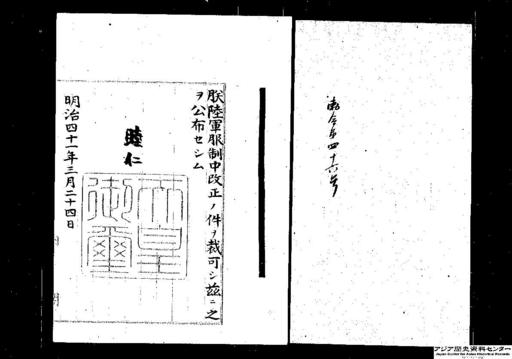 勅令第四十六号
朕陸軍服制中改正ノ件ヲ裁可シ茲ニ之
ヲ公布セシム
睦仁
天皇
御璽
明治四十一年三月二十四日
アジア歴史資料センター
Japan Center for Asian Historical Records